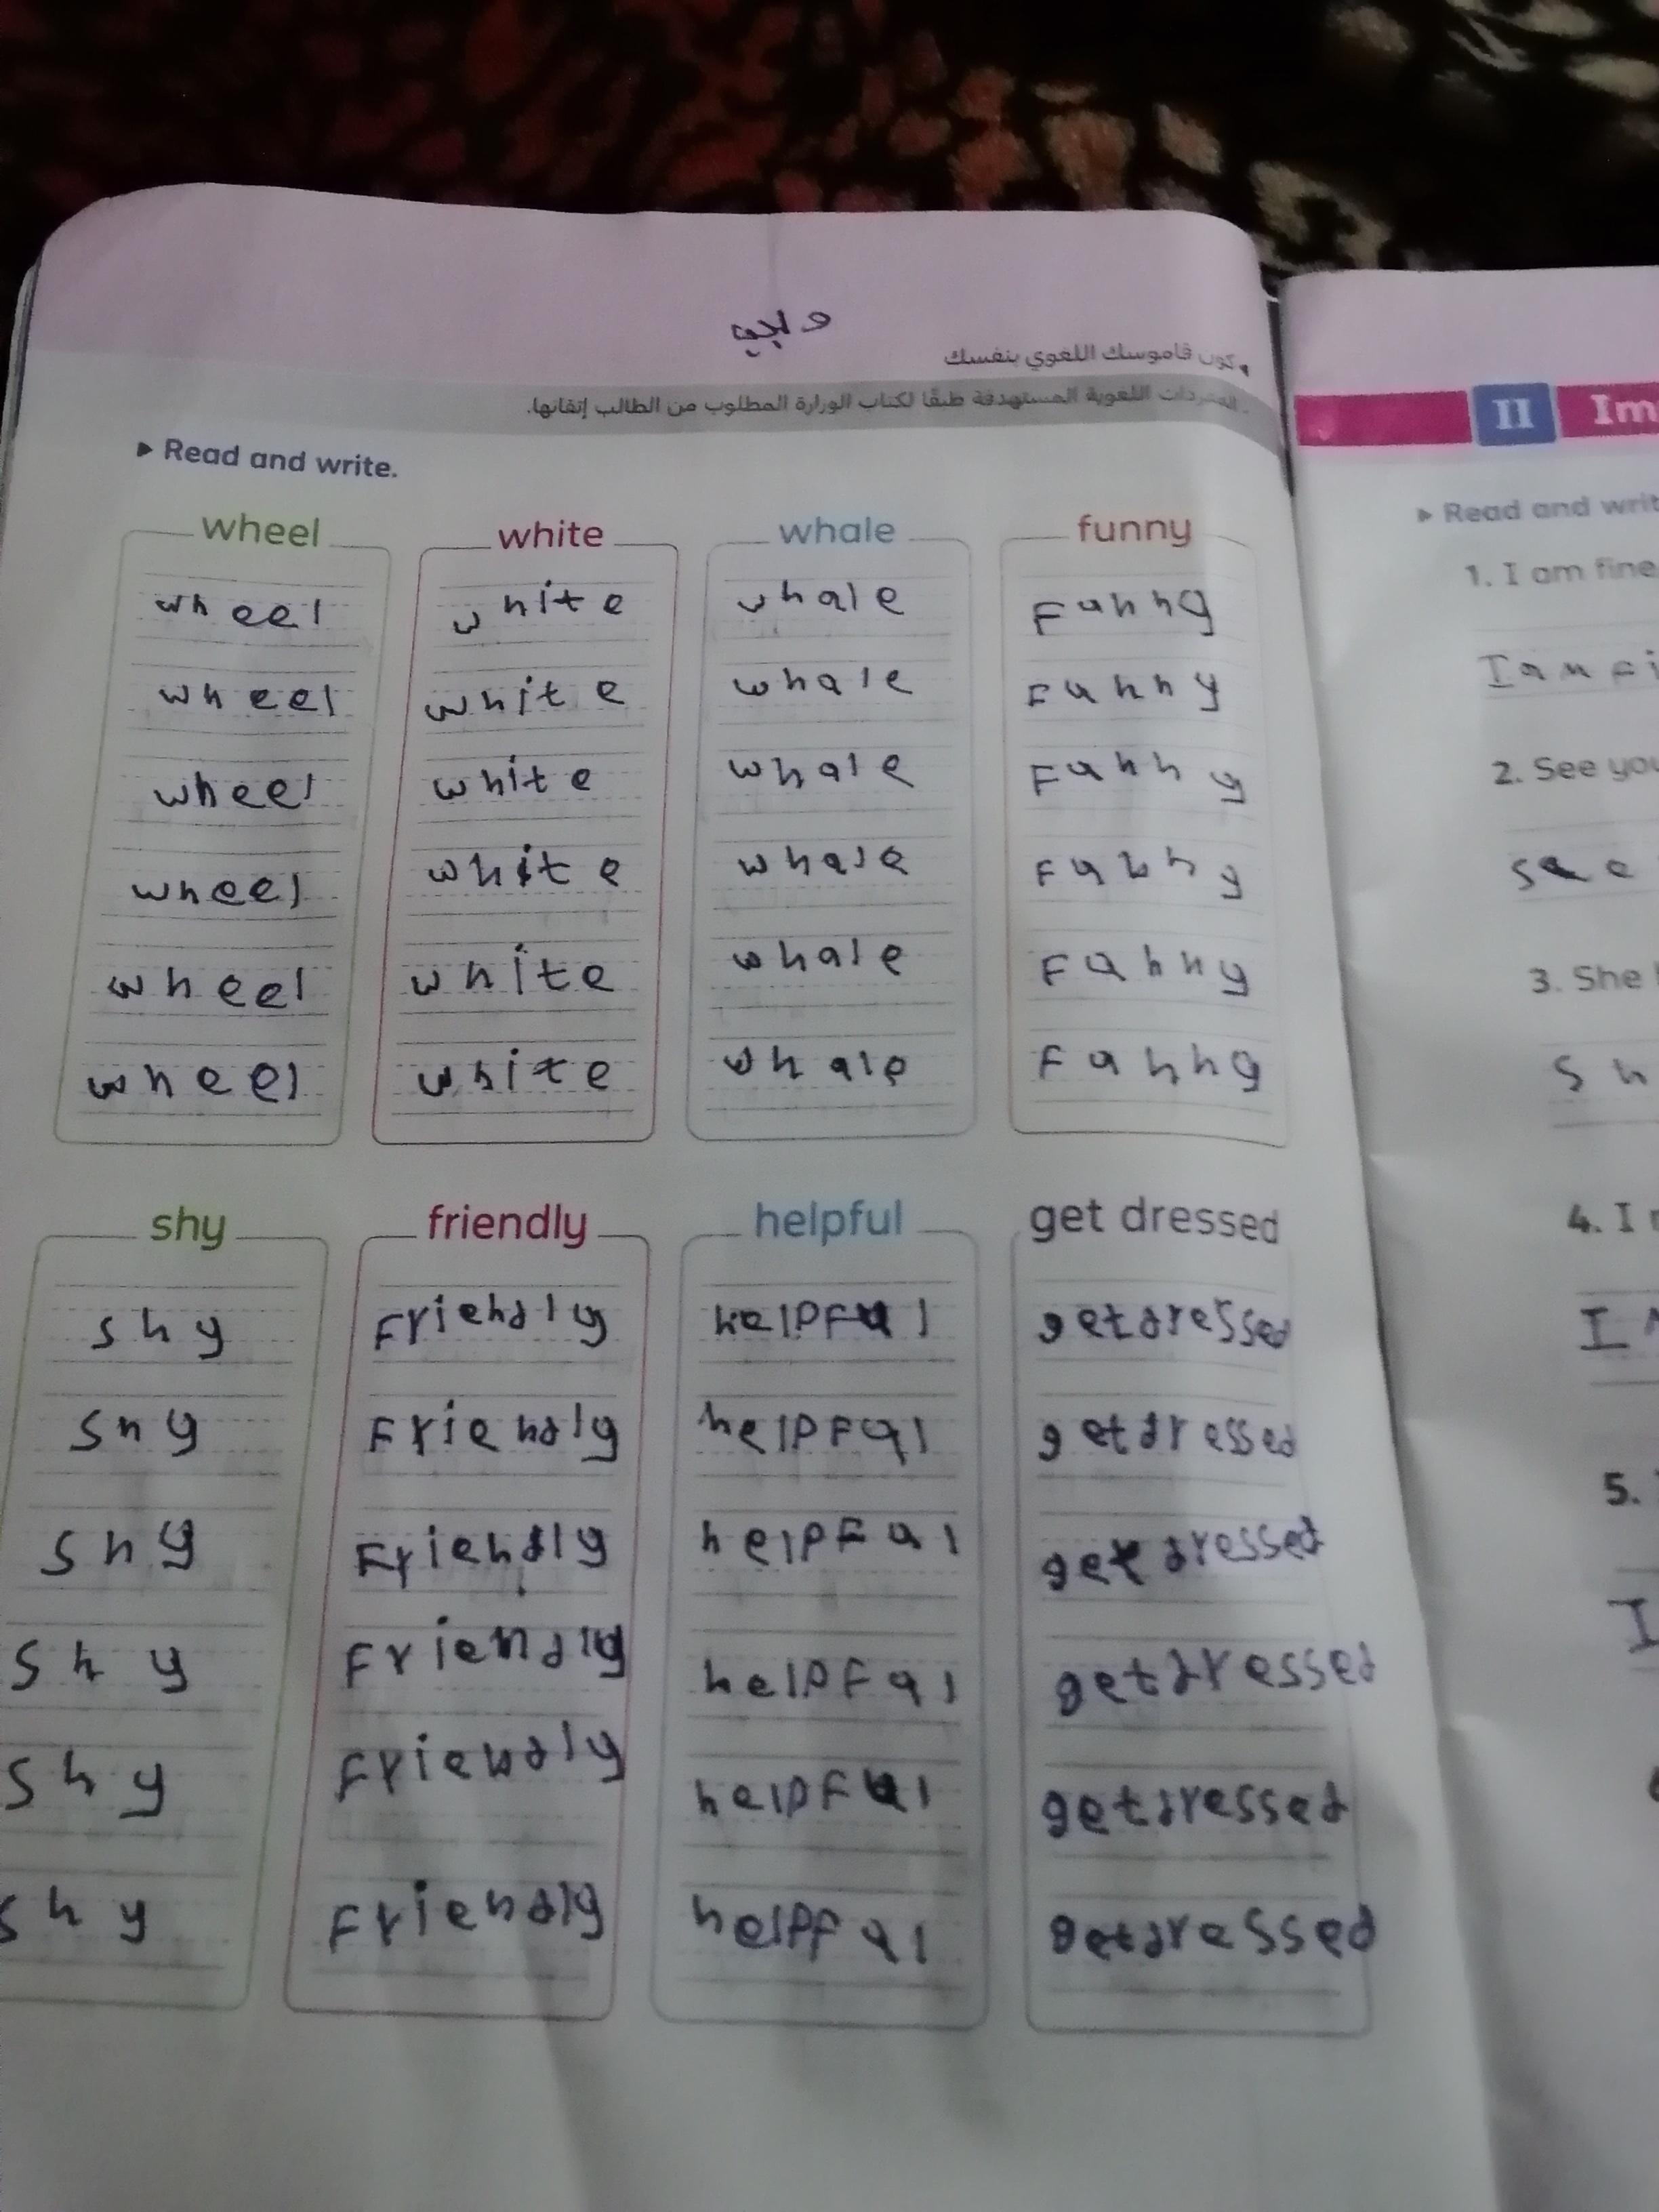 كون قاموسك اللغوي بنفسك
المفردات اللغوية المستهدفة طبقًا لكتاب الوزارة المطلوب من الطالب إتقانها.
Read and write.
wheel white whale funny
wheel white whale Funny
wheel white whale Funny
wheel white whale Funny
wheel white whale Funny
wheel white whale Funny
wheel white whale Funny
shy friendly helpful get dressed
shy Friendly helpFul get dressed
shy Friendly helpFul get dressed
shy Friendly helpFul get dressed
shy Friendly helpFul get dressed
shy Friendly helpFul get dressed
shy Friendly helpFul get dressed
II Im
Read and writ
1. I am fine
I am Fi
2. See you
see
3. She
sh
4. I
I
5.
I